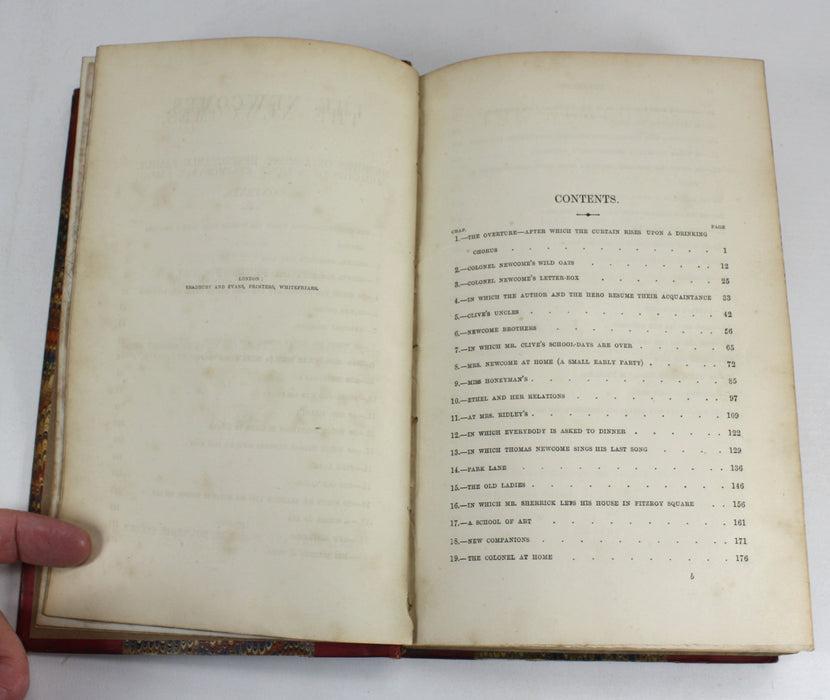 LONDON:
BRADBURY AND EVANS, PRINTERS, WHITEFRIARS.
CONTENTS.
CHAP. PAGE
1.—THE OVERTURE—AFTER WHICH THE CURTAIN RISES UPON A DRINKING
CHORUS . . . . . . . . . . 1
2.—COLONEL NEWCOME'S WILD OATS . . . . . . . . 12
3.—COLONEL NEWCOME'S LETTER-BOX . . . . . . . 25
4.—IN WHICH THE AUTHOR AND THE HERO RESUME THEIR ACQUAINTANCE 33
5.—CLIVE'S UNCLES . . . . . . . . . 42
6.—NEWCOME BROTHERS . . . . . . . . 56
7.—IN WHICH MR. CLIVE'S SCHOOL-DAYS ARE OVER . . . . 65
8.—MRS. NEWCOME AT HOME (A SMALL EARLY PARTY) . . . . 72
9.—MISS HONEYMAN'S . . . . . . . . . 85
10.—ETHEL AND HER RELATIONS . . . . . . . 97
11.—AT MRS. RIDLEY'S . . . . . . . . . 109
12.—IN WHICH EVERYBODY IS ASKED TO DINNER . . . . . 122
13.—IN WHICH THOMAS NEWCOME SINGS HIS LAST SONG . . . . 129
14.—PARK LANE . . . . . . . . . . 136
15.—THE OLD LADIES . . . . . . . . . 146
16.—IN WHICH MR. SHERRICK LETS HIS HOUSE IN FITZROY SQUARE . . 156
17.—A SCHOOL OF ART . . . . . . . . . 161
18.—NEW COMPANIONS . . . . . . . . . 171
19.—THE COLONEL AT HOME . . . . . . . . 176
b